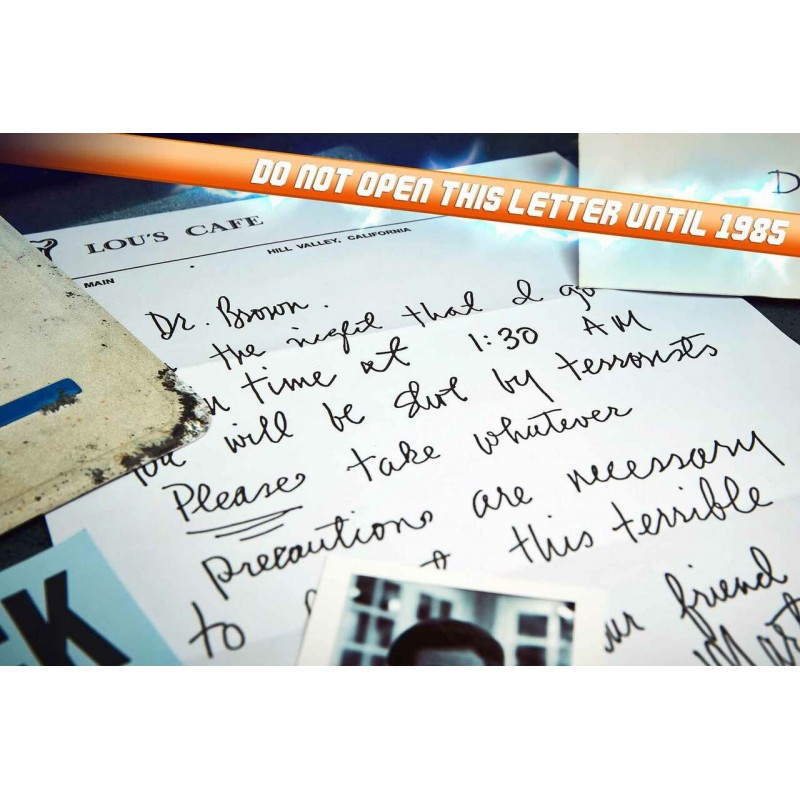 DO NOT OPEN THIS LETTER UNTIL 1985
D
LOU'S CAFE
HILL VALLEY, CALIFORNIA
MAIN
Dr. Brown.
the night that I go
time at 1:30 AM
you will be shot by terrorists
Please take whatever
precautions are necessary
to this terrible
friend
Mart
K